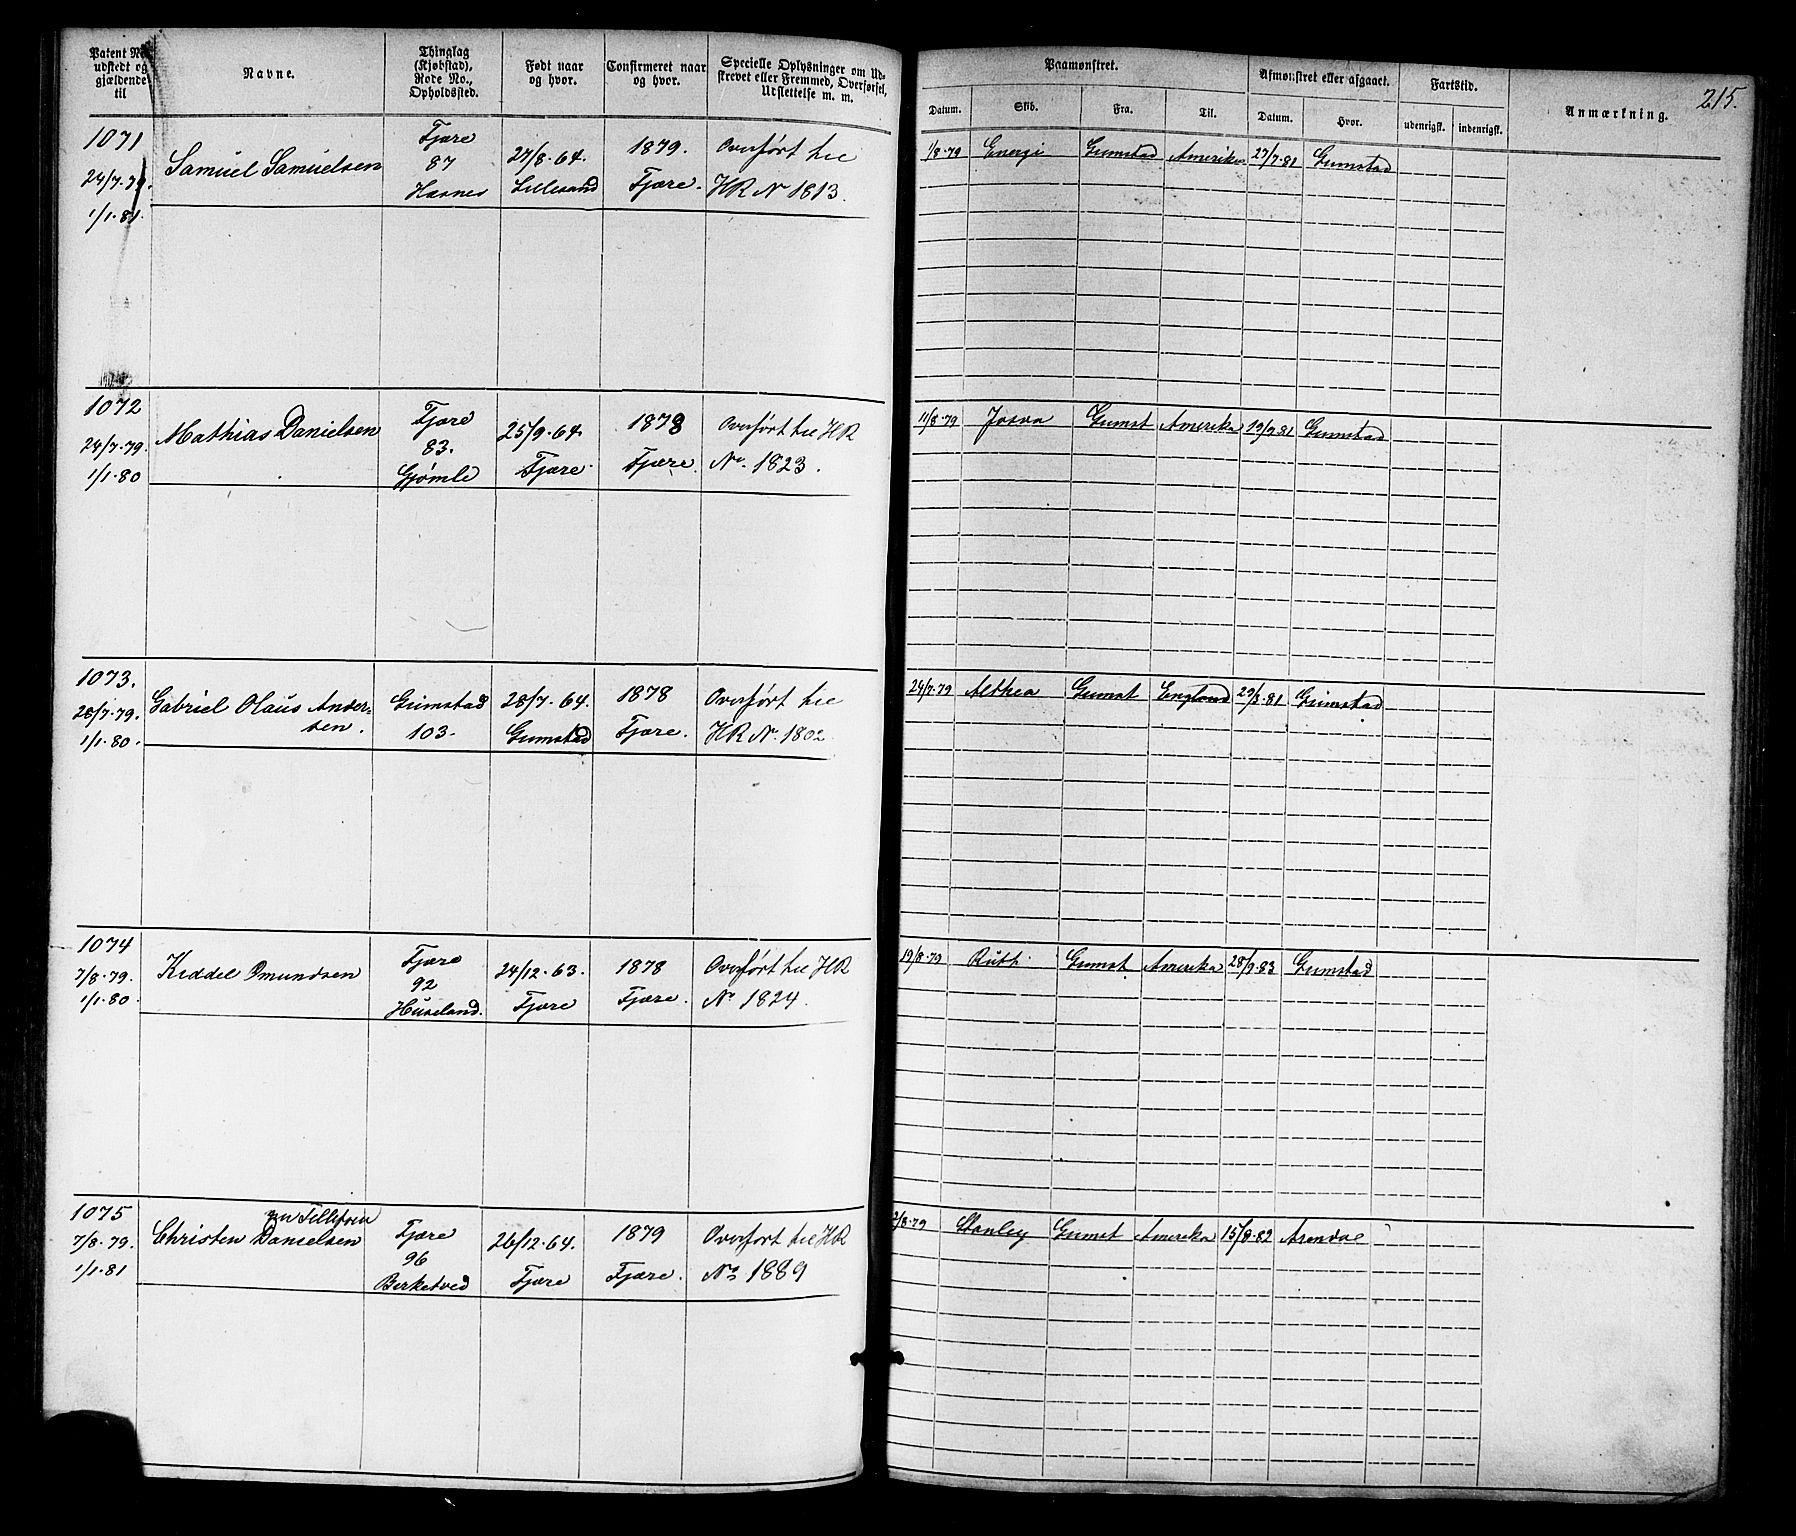 Patent No. udstedt og gjældende til
Navne.
Thinglag (Kjøbstad), Rode No., Opholdssted.
Født naar og hvor.
Confirmeret naar og hvor.
Specielle Oplysninger om Udskrevet eller Fremmed, Overførsel, Udslettelse m. m.
Paamønstret.
Datum. Skib. Fra. Til.
Afmønstret eller afgaaet.
Datum. Hvor.
Fartstid.
udenrigsk. indenrigsk.
Anmærkning.
215.
1071
24/7.79.
1/1.81.
Samuel Samuelsen
Fjære
87
Hasnes
27/8.64.
Lillesand
1879.
Fjære.
Overført til
HR No 1813.
1/8.79 Energi Grimstad Amerika 27/7.81 Grimstad
1072
24/7.79.
1/1.80
Mathias Danielsen
Fjære
83.
Gjømle
25/9.64.
Fjære.
1878
Fjære.
Overført til HR
No. 1823.
11/8.79 Josva Grimst Amerika 19/9.81 Grimstad
1073.
28/7.79.
1/1.80.
Gabriel Olaus Andersen.
Grimstad
103.
28/7.64.
Grimstad
1878
Fjære.
Overført til
HR No. 1802
24/7.79 Althea Grimst England 29/3.81 Grimstad
1074
7/8.79.
1/1.80.
Keddel Omundsen
Fjære
92
Huseland.
24/12.63.
Fjære
1878
Fjære.
Overført til HR
No 1824.
19/8.79 Ruth. Grimst Amerika 28/9.83 Grimstad
1075
7/8.79.
1/1.81
Christen Danielsen
Fjære
96
Birketved
26/12.64.
Fjære
1879
Fjære.
Overført til HR
No 1889
2/8.79 Stanley Grimst Amerika 15/8.82 Arendal